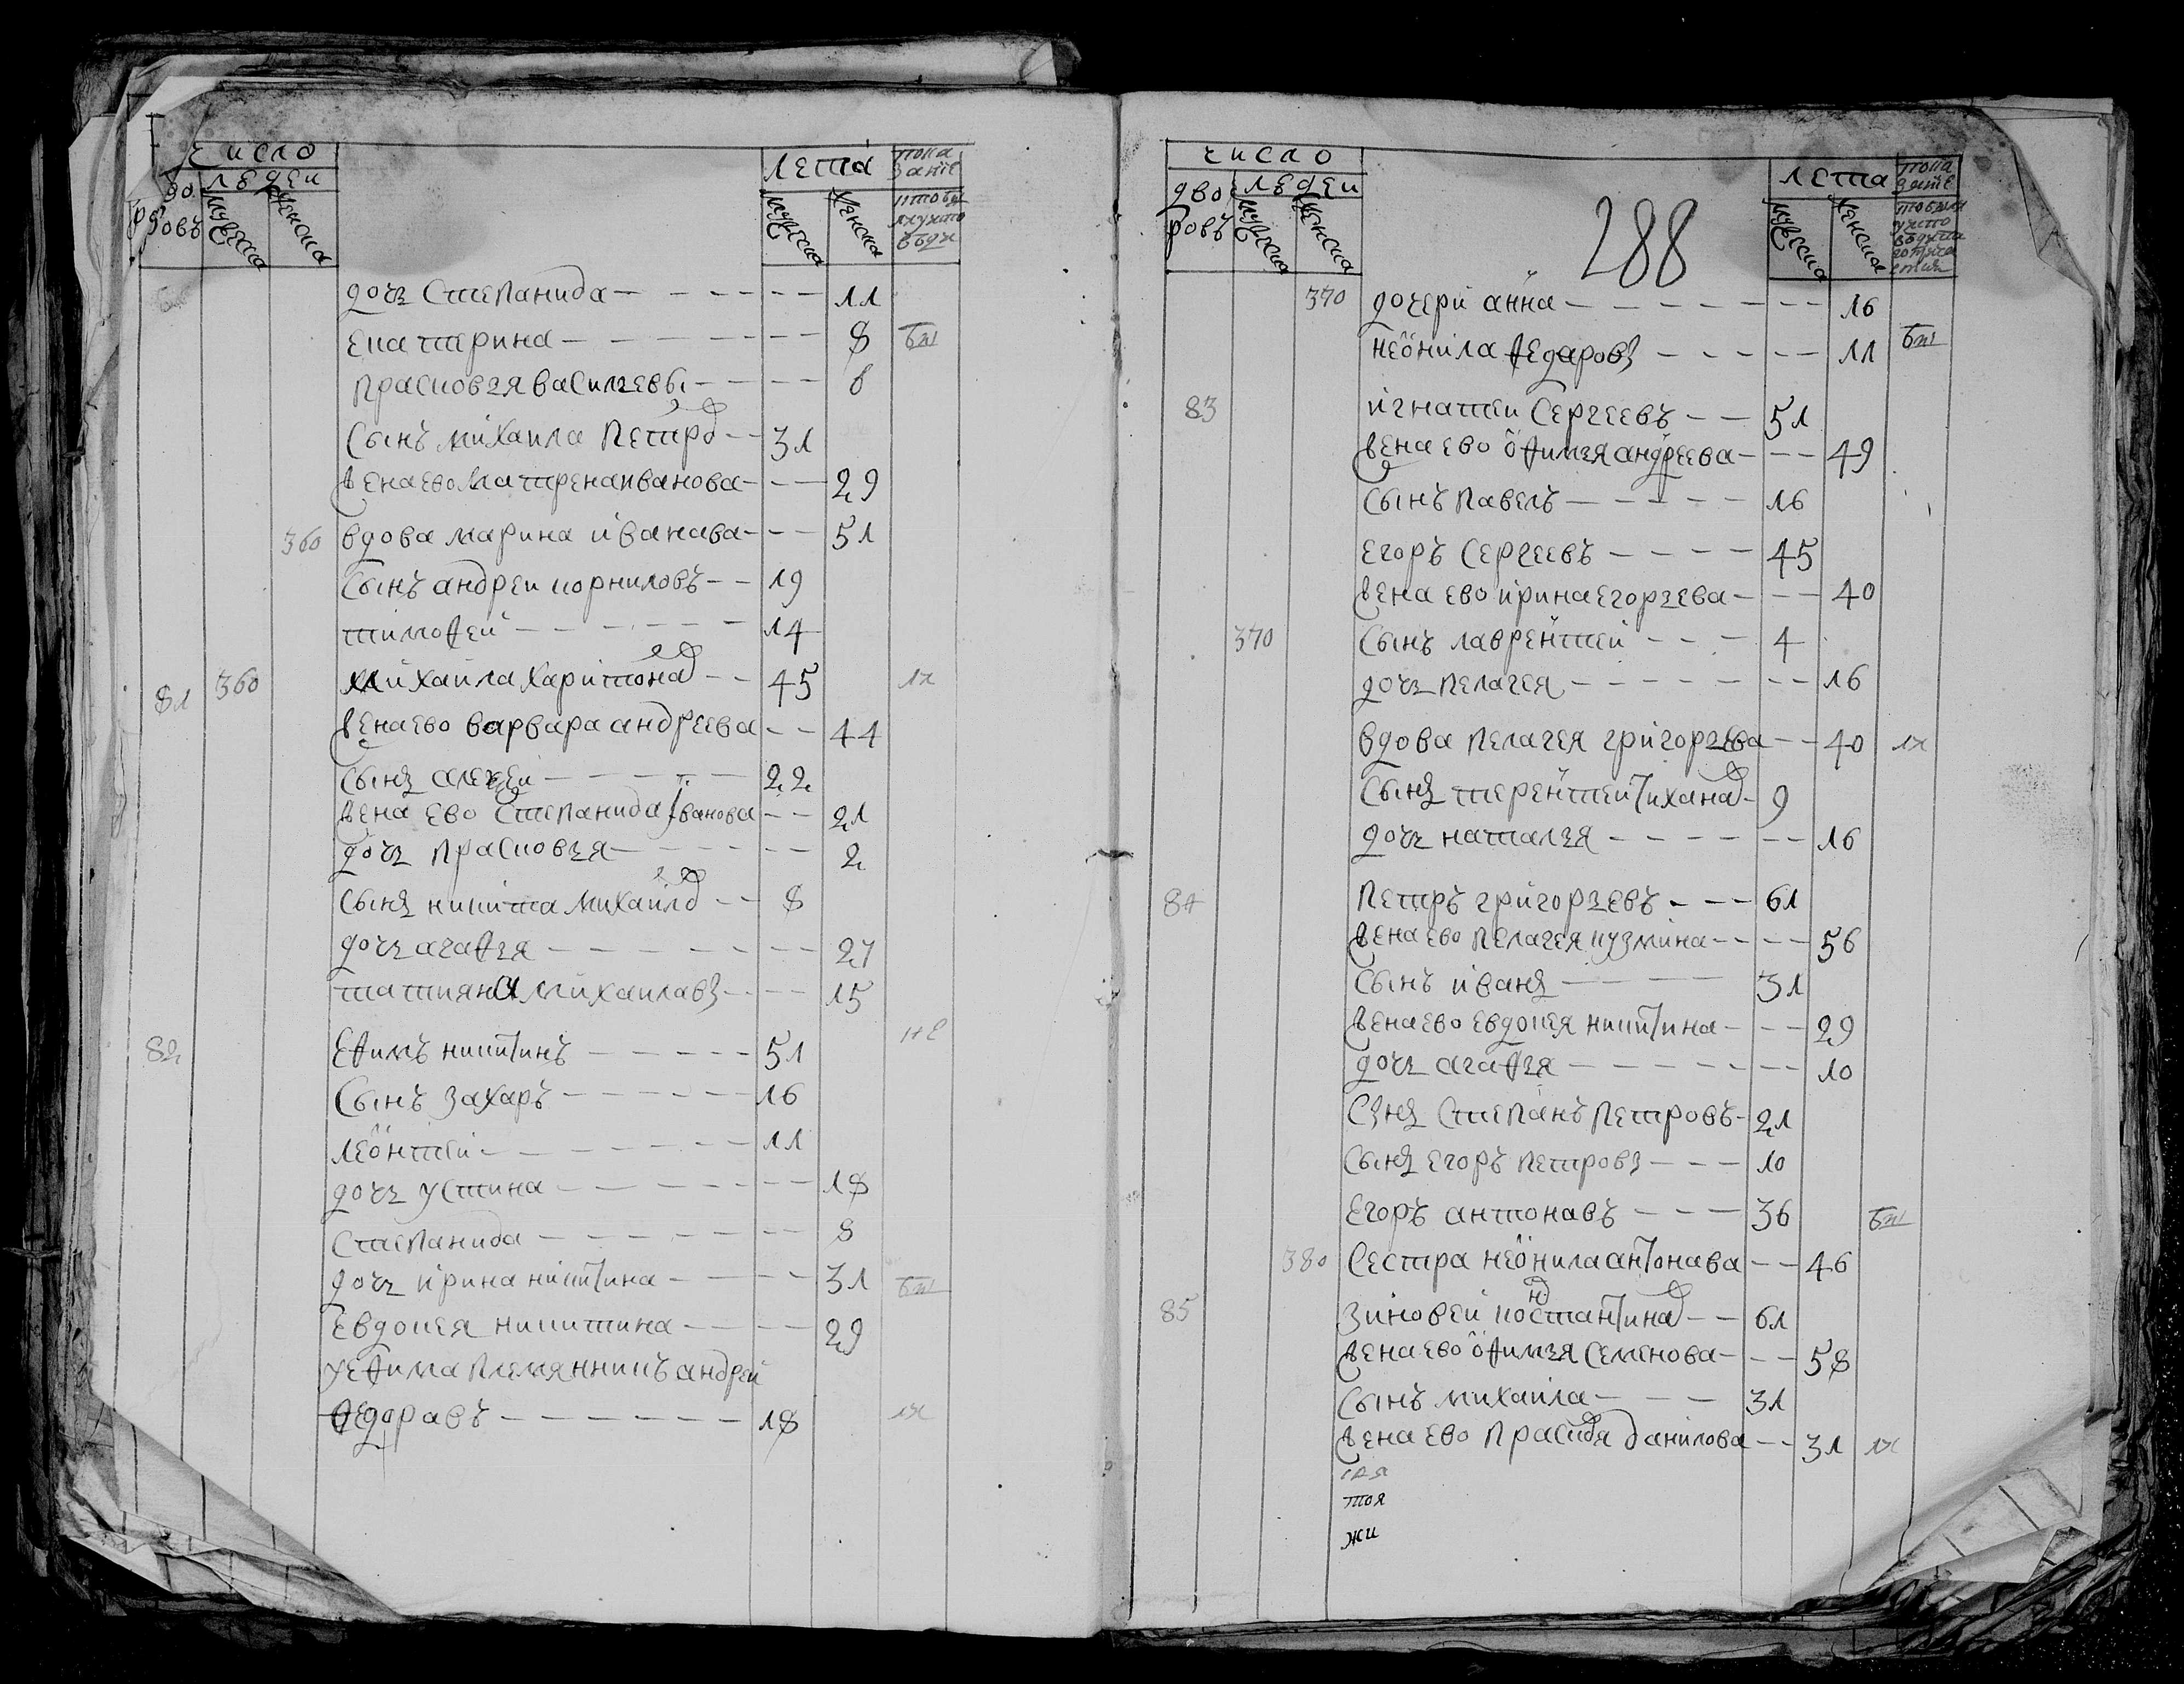 число
дво ровъ
людеи
мужеска
женска
лета
мужеска
женска
пока зание
дочь Степанида 11
Екатерина 8 бы
Прасковья Васильевы 6
Сынъ михаила Петровъ 31
жена ево Матрена иванова 29
360 вдова марина иванава 51
Сынъ андреи корниловъ 19
тимофеи 14
81 360 михаила харитоновъ 45 1х
жена ево варвара андреева 44
Сынъ алексеи 22
жена ево Степанида Iванова 21
дочь прасковья 2
Сынъ никита михаиловъ 8
дочь агафья 27
татияна михаилавы 15
82 Ефимъ никитинъ 51 не
Сынъ захаръ 16
леонтеи 11
дочь устина 18
Степанида 8
дочь ирина никитина 31 бы
Евдокея никитина 29
у ефима племянникъ андреи
федаравъ 18 1х
288
число
дво ровъ
людеи
мужеска
женска
лета
мужеска
женска
пока зание
370 дочери анна 16
неонила федаровы 11 бы
83 игнатеи Сергеевъ 51
жена ево офимья андреева 49
Сынъ павелъ 16
егоръ Сергеевъ 45
жена ево ирина егорьева 40
370 Сынъ лаврентеи 4
дочь пелагея 16
вдова пелагея григорьева 40 1х
Сынъ терентеи тиханавъ 9
дочь наталья 16
84 петръ григорьевъ 61
жена ево пелагея кузмина 56
Сынъ иванъ 31
жена ево евдокея никитина 29
дочь агафья 10
Сынъ Степанъ петровъ 21
Сынъ егоръ петровъ 10
егоръ антонавъ 36 бы
380 Сестра неонила антонава 46
85 зиновеи костантинавъ 61
жена ево офимья Семенова 58
Сынъ михаила 31
жена ево прасковя данилова 31 1х
тоя
жи